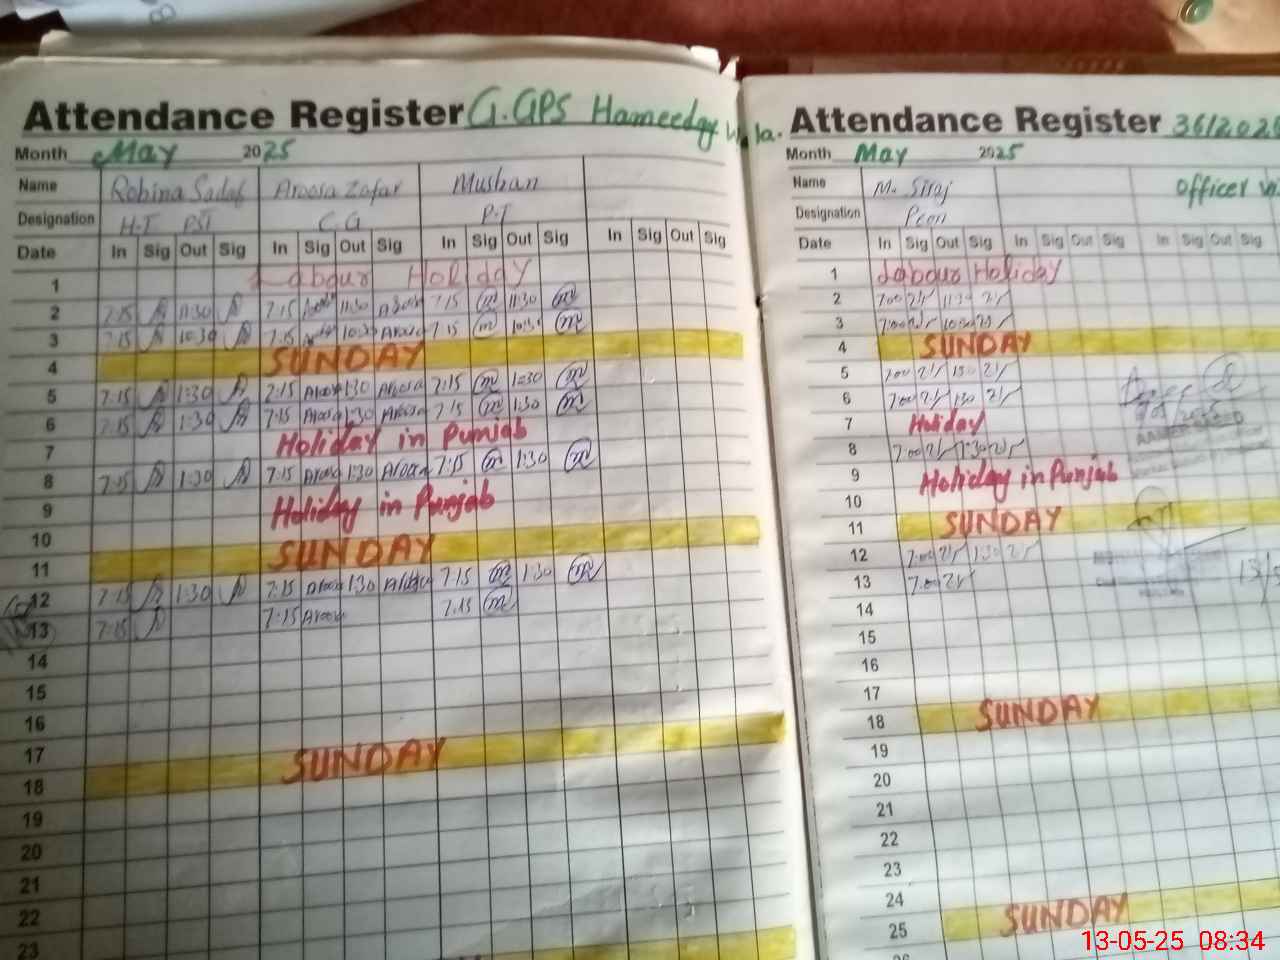 Attendance Register G.GPS Hameedgy wala.
Month May 2025
Name Robina Sadaf Aroosa Zafar Muskan
Designation H.T PST C.G P.T
Date In Sig Out Sig In Sig Out Sig In Sig Out Sig In Sig Out Sig
1 Labour Holiday
2 7:15 11:30 7:15 11:30 7:15 11:30
3 7:15 10:30 7:15 10:30 Aroosa 7:15 10:30
4 SUNDAY
5 7:15 1:30 7:15 Aroosa 1:30 Aroosa 7:15 1:30
6 7:15 1:30 7:15 Aroosa 1:30 Aroosa 7:15 1:30
7 Holiday in Punjab
8 7:15 1:30 7:15 Aroosa 1:30 Aroosa 7:15 1:30
9 Holiday in Punjab
10
11 SUNDAY
12 7:15 1:30 7:15 Aroosa 1:30 7:15 1:30
13 7:15 7:15 Aroosa 7:15
14
15
16
17
18 SUNDAY
19
20
21
22
23
Attendance Register 36/2025
Month May 2025
Name M. Siraj Officer
Designation Peon
Date In Sig Out Sig In Sig Out Sig In Sig Out Sig
1 Labour Holiday
2 7:00 11:30
3 7:00 10:30
4 SUNDAY
5 7:00 1:30
6 7:00 1:30
7 Holiday
8 7:00 1:30
9 Holiday in Punjab
10
11 SUNDAY
12 7:00 1:30
13 7:00
14
15
16
17
18 SUNDAY
19
20
21
22
23
24
25 SUNDAY
13-05-25 08:34